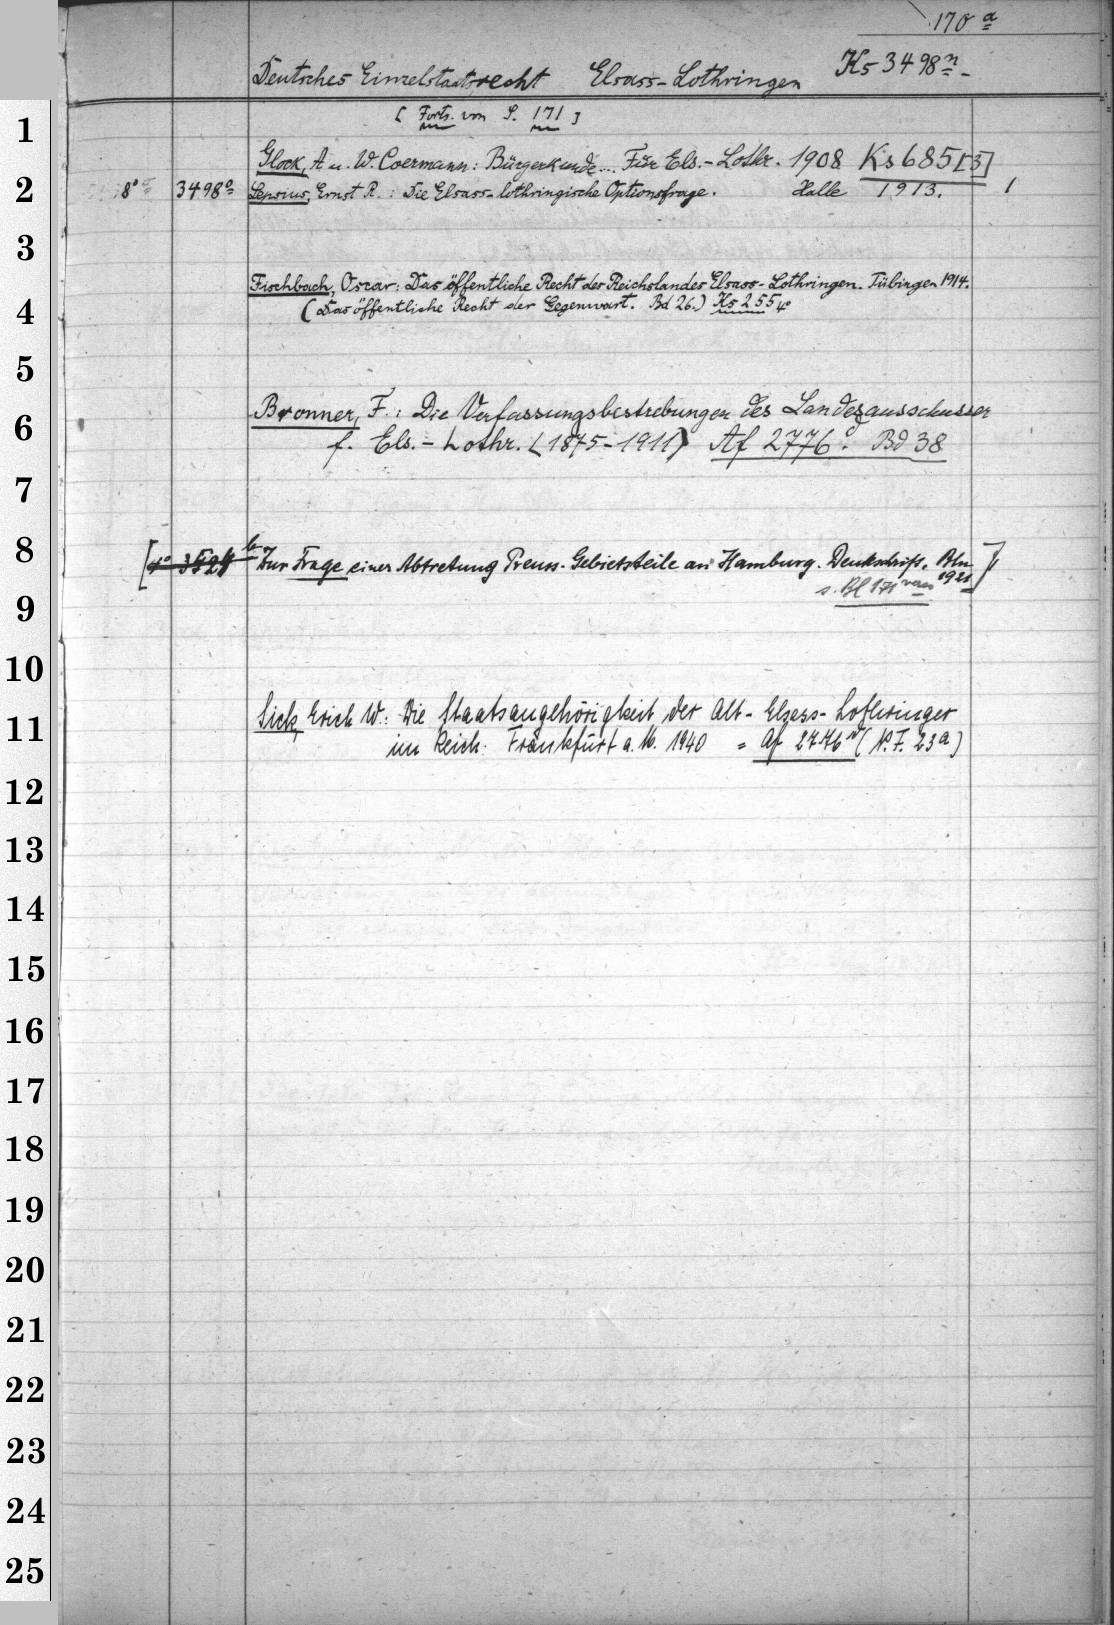 170 a
Deutsches Einzelstaatsrecht Elsass-Lothringen Ks 3498 n
[Forts. von S. 171]
1
Glock, A u. W. Coermann: Bürgerkunde... Für Els.-Lothr. 1908 Ks 685 [3]
2 8° 3498 o Lepsius, Ernst R.: Die Elsass-lothringische Optionsfrage. Halle 1913. 1
3
Fischbach, Oscar: Das öffentliche Recht des Reichslandes Elsass-Lothringen. Tübingen 1914.
4 (Das öffentliche Recht der Gegenwart. Bd 26.) Ks 255 4°
5
Bronner, F.: Die Verfassungsbestrebungen des Landesausschusses
6 f. Els.-Lothr. (1875-1911) Af 2776 d. Bd 38
7
8 [4° 3524 b Zur Frage einer Abtretung Preuss. Gebietsteile an Hamburg. Denkschrift. Bln 1921]
s. Bl 171
9
10
Sick, Erich W.: Die Staatsangehörigkeit der Alt-Elsass-Lothringer
11 im Reich. Frankfurt a. M. 1940 = Af 2776 (N.F. 23a)
12
13
14
15
16
17
18
19
20
21
22
23
24
25